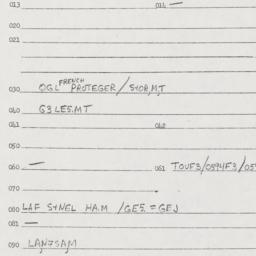 013 014 —
020
021
030 OGL FRENCH PROTEGER / STOR.MT
040 G3LES.MT
041 042
050
060 — 061 TOUF3/0594F3/05
070
080 LAF SYNEL HA.M / GES = GEJ
081 —
090 LANTSAM